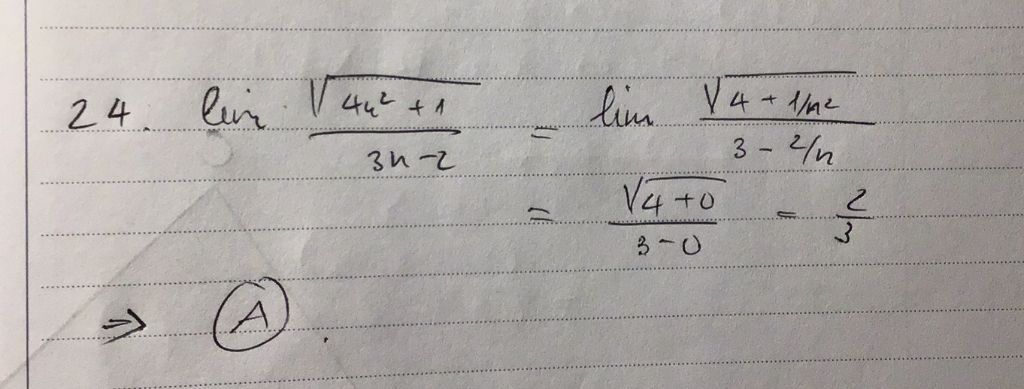 24. lim √(4n² + 1) / (3n - 2) = lim √(4 + 1/n²) / (3 - 2/n)
= √(4 + 0) / (3 - 0) = 2/3
⇒ A.